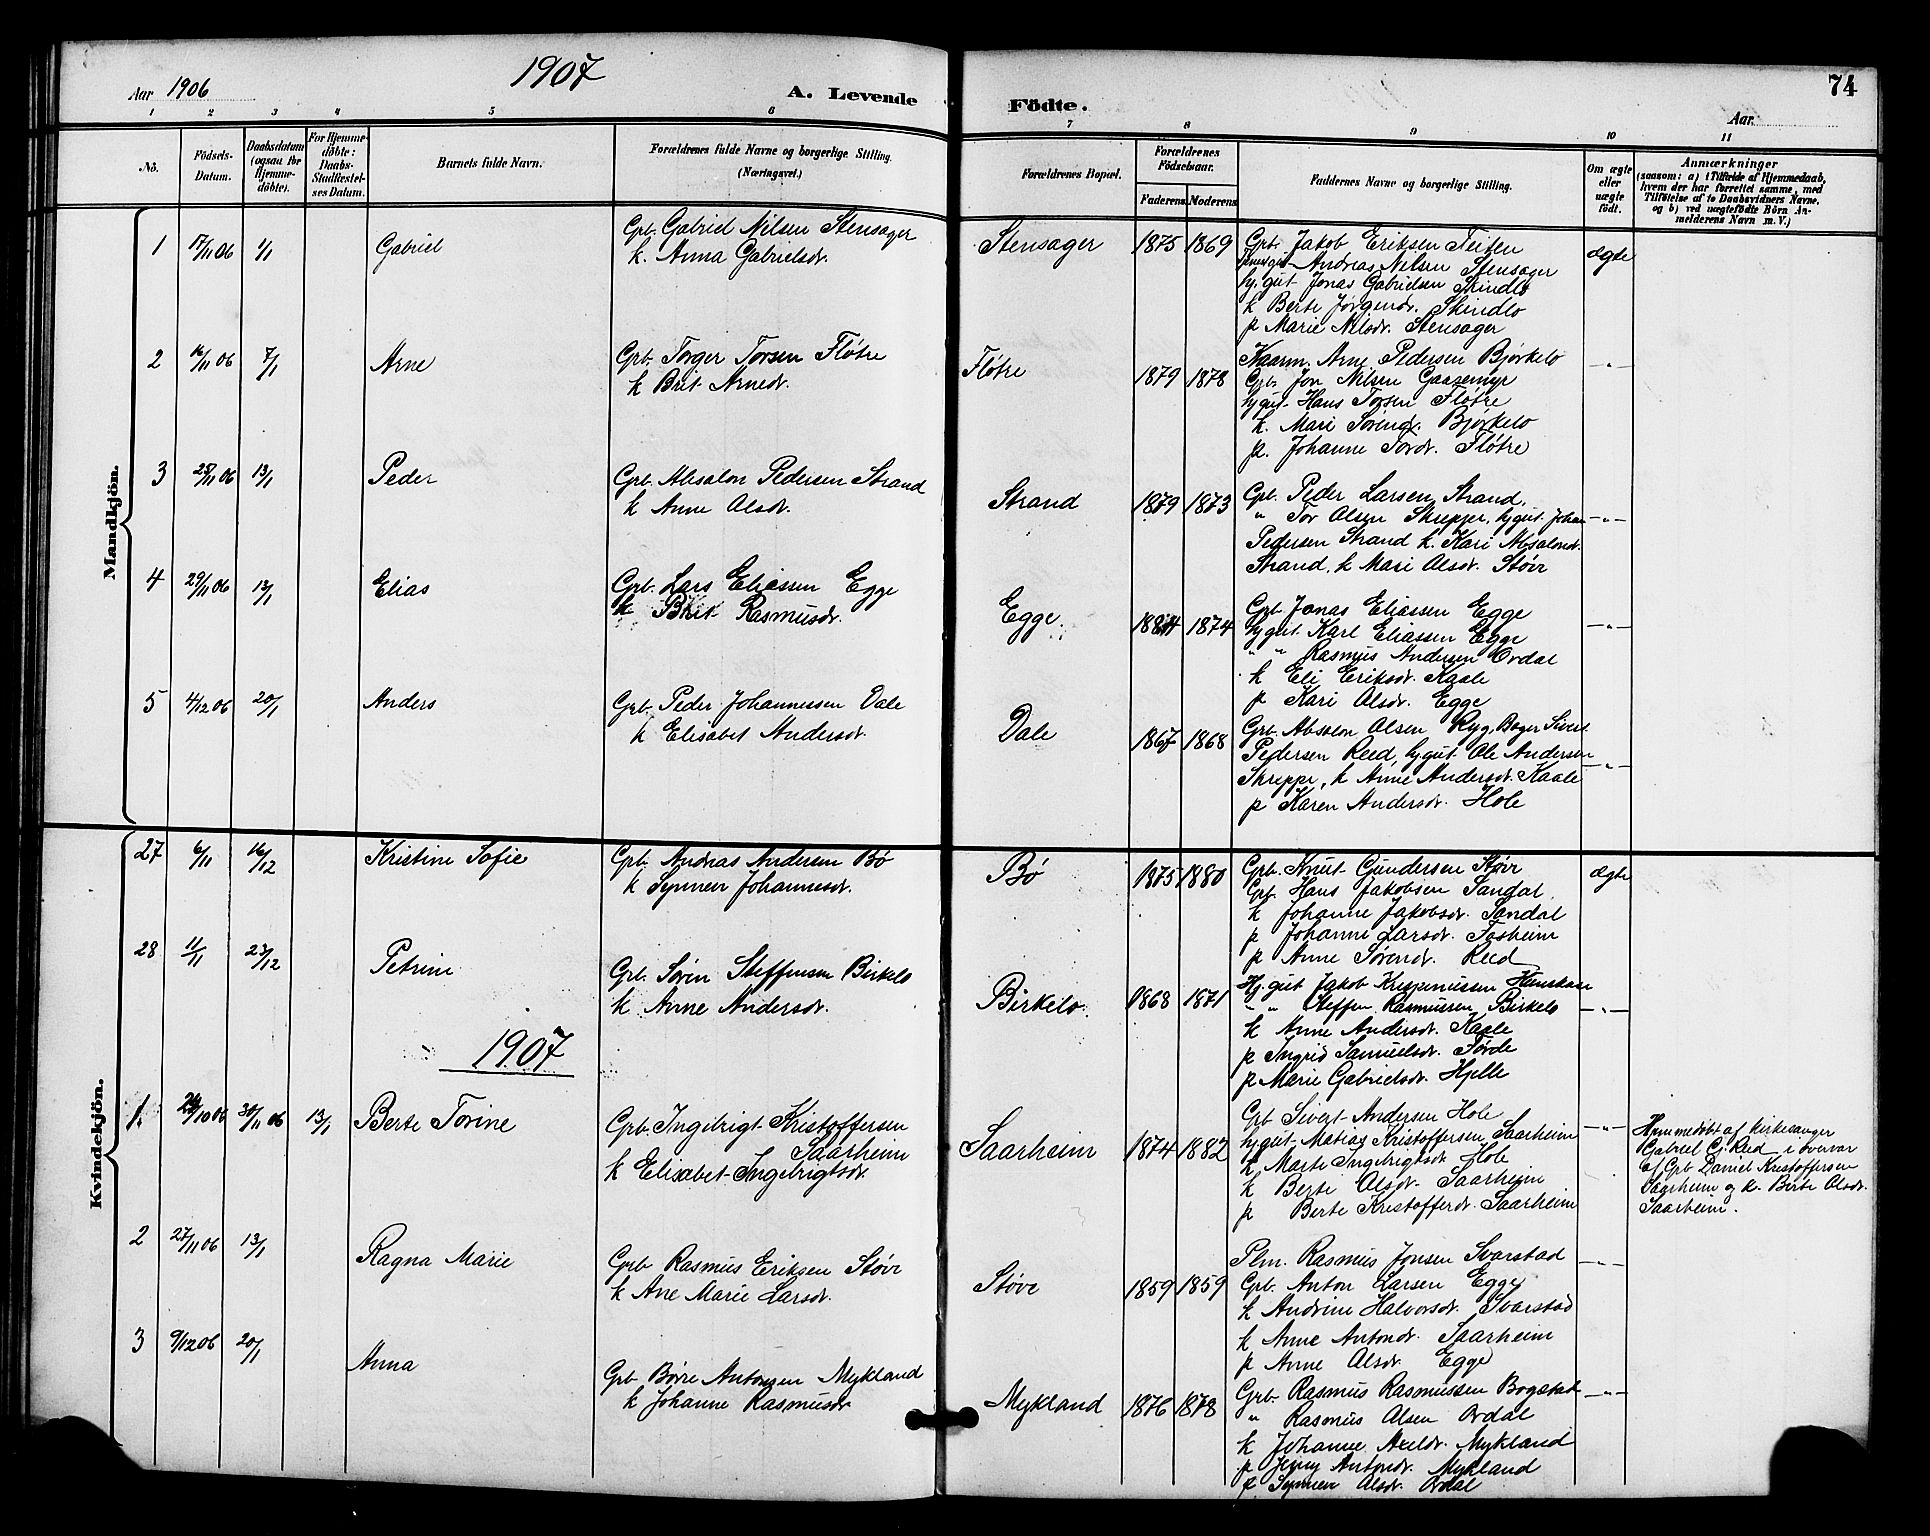 Aar 1906
1907
A. Levende
Födte.
Aar.
74
1 2 3 4 5 6 7 8 9 10 11
No.
Födsels-Datum.
Daabsdatum (ogsaa for Hjemmedöbte).
For Hjemmedöbte: Daabs-Stadfæstelses Datum.
Barnets fulde Navn.
Forældrenes fulde Navne og borgerlige Stilling.
(Næringsvei.)
Forældrenes Bopæl.
Forældrenes Födselsaar.
Faderens Moderens
Faddernes Navne og borgerlige Stilling.
Om ægte eller uægte födt.
Anmærkninger
(saasom: a) i Tilfælde af Hjemmedaab,
hvem der har forrettet samme, med
Tilföielse af to Daabsvidners Navne,
og b) ved uægtefödte Börn Anmelderens Navn m. V.)
Mandkjön.
1 17/11 06 1/1 Gabriel
Grb. Gabriel Nilsen Stensager
k. Anna Gabrielsdr.
Stensager 1875 1869
Grb. Jakob Eriksen Teifen ægte
Andreas Nilsen Stensager
hj.gut Jonas Gabrielsen Skindlo
k Berte Jørgensdr. Skindlo
p Marie Nilsdr. Stensager
2 16/11 06 7/1 Arne
Grb. Torger Torsen Fløtre
k Brit Arnedr.
Fløtre 1879 1878
Kaarm. Arne Pedersen Bjørkelo -"-
Grb. Jon Nilsen Gaasemyr
hj.gut Hans Torsen Fløtre
k. Mari Sørensdr. Bjørkelo
p. Johanne Tordr. Fløtre
3 25/11 06 13/1 Peder
Grb. Absalon Pedersen Strand
k Anne Alsdr.
Strand 1879 1873
Grb. Peder Larsen Strand,
" Tor Alsen Skrepper, hj.gut. Johan -"-
Pedersen Strand k. Kari Absalondr.
Strand, k Mari Alsdr. Støvr
4 29/11 06 13/1 Elias
Grb. Lars Eliassen Egge
k Brit Rasmusdr.
Egge 1884 1874
Grb. Jonas Eliassen Egge
hj.gut. Karl Eliassen Egge -"-
" " Rasmus Andersen Ordal
k Eli Eriksdr. Kaale
p Kari Alsdr. Egge
5 4/12 06 20/1 Anders
Grb. Peder Johannessen Dale
k Elisabet Andersdr.
Dale 1867 1868
Grb. Absalon Alsen Ryg, Bager Sivert
Pedersen Reed, hj.gut. Ole Andersen -"-
Skreppe, k Anne Andersdr. Kaale
p Karen Andersdr. Hole
Kvindekjön.
27 6/11 16/12 Kristine Sofie
Grb. Andreas Andersen Bø
k Synneve Johannesdr.
Bø 1875 1880
Grb. Knut Gundersen Støvr ægte
Grb. Hans Jakobsen Sandal
k Johanne Jakobsdr. Sandal
p Johanne Larsdr. Fosheim
p Anne Sørensdr. Reed
28 11/1 23/12 Petrine
Grb. Søren Steffensen Birkelo
k Anne Andersdr.
Birkelo 1868 1871
Hj.gut Jakob Krispinussen
" " Steffen Rasmussen Birkelo -"-
k Anne Andersdr. Kaale
p Ingrid Samuelsdr. Førde
p Marie Gabrielsdr. Hjelle
1907
1. 10 06 30/11 06 13/1 Berte Torine
Grb. Ingebrigt Kristoffersen
Saarheim
k Elisabet Ingebrigtsdr.
Saarheim 1874 1882
Grb Sivert Andersen Hole
hj.gut. Matias Kristoffersen Saarheim -"-
k, Marte Ingebrigtsdr. Hole
k Berte Alsdr. Saarheim
p Berte Kristofferdr. Saarheim
Hjemmedøbt af kirkesanger
Gabriel Cj. Reed i overvær
af Grb. Daniel Kristoffersen
Saarheim og k. Berte Alsdr.
Saarheim.
2 27/11 06 13/1 Ragna Marie
Grb Rasmus Eriksen Støvr
k Ane Marie Larsdr.
Støve 1859 1859
Plm. Rasmus Jonsen Svarstad
Grb. Anton Larsen Egge -"-
k Andrine Halvorsdr. Svarstad
k Anne Antondr. Saarheim
p Anne Alsdr. Egge
3 9/12 06 20/1 Anna
Grb Børre Antonsen Mykland
k Johanne Rasmusdr.
Mykland 1876 1878
Grb. Rasmus Rasmussen Bogstad -"-
" Rasmus Alsen Ordal
k Johanne Axeldr. Mykland
p Jenny Antondr. Mykland
p Synneve Alsdr. Ordal